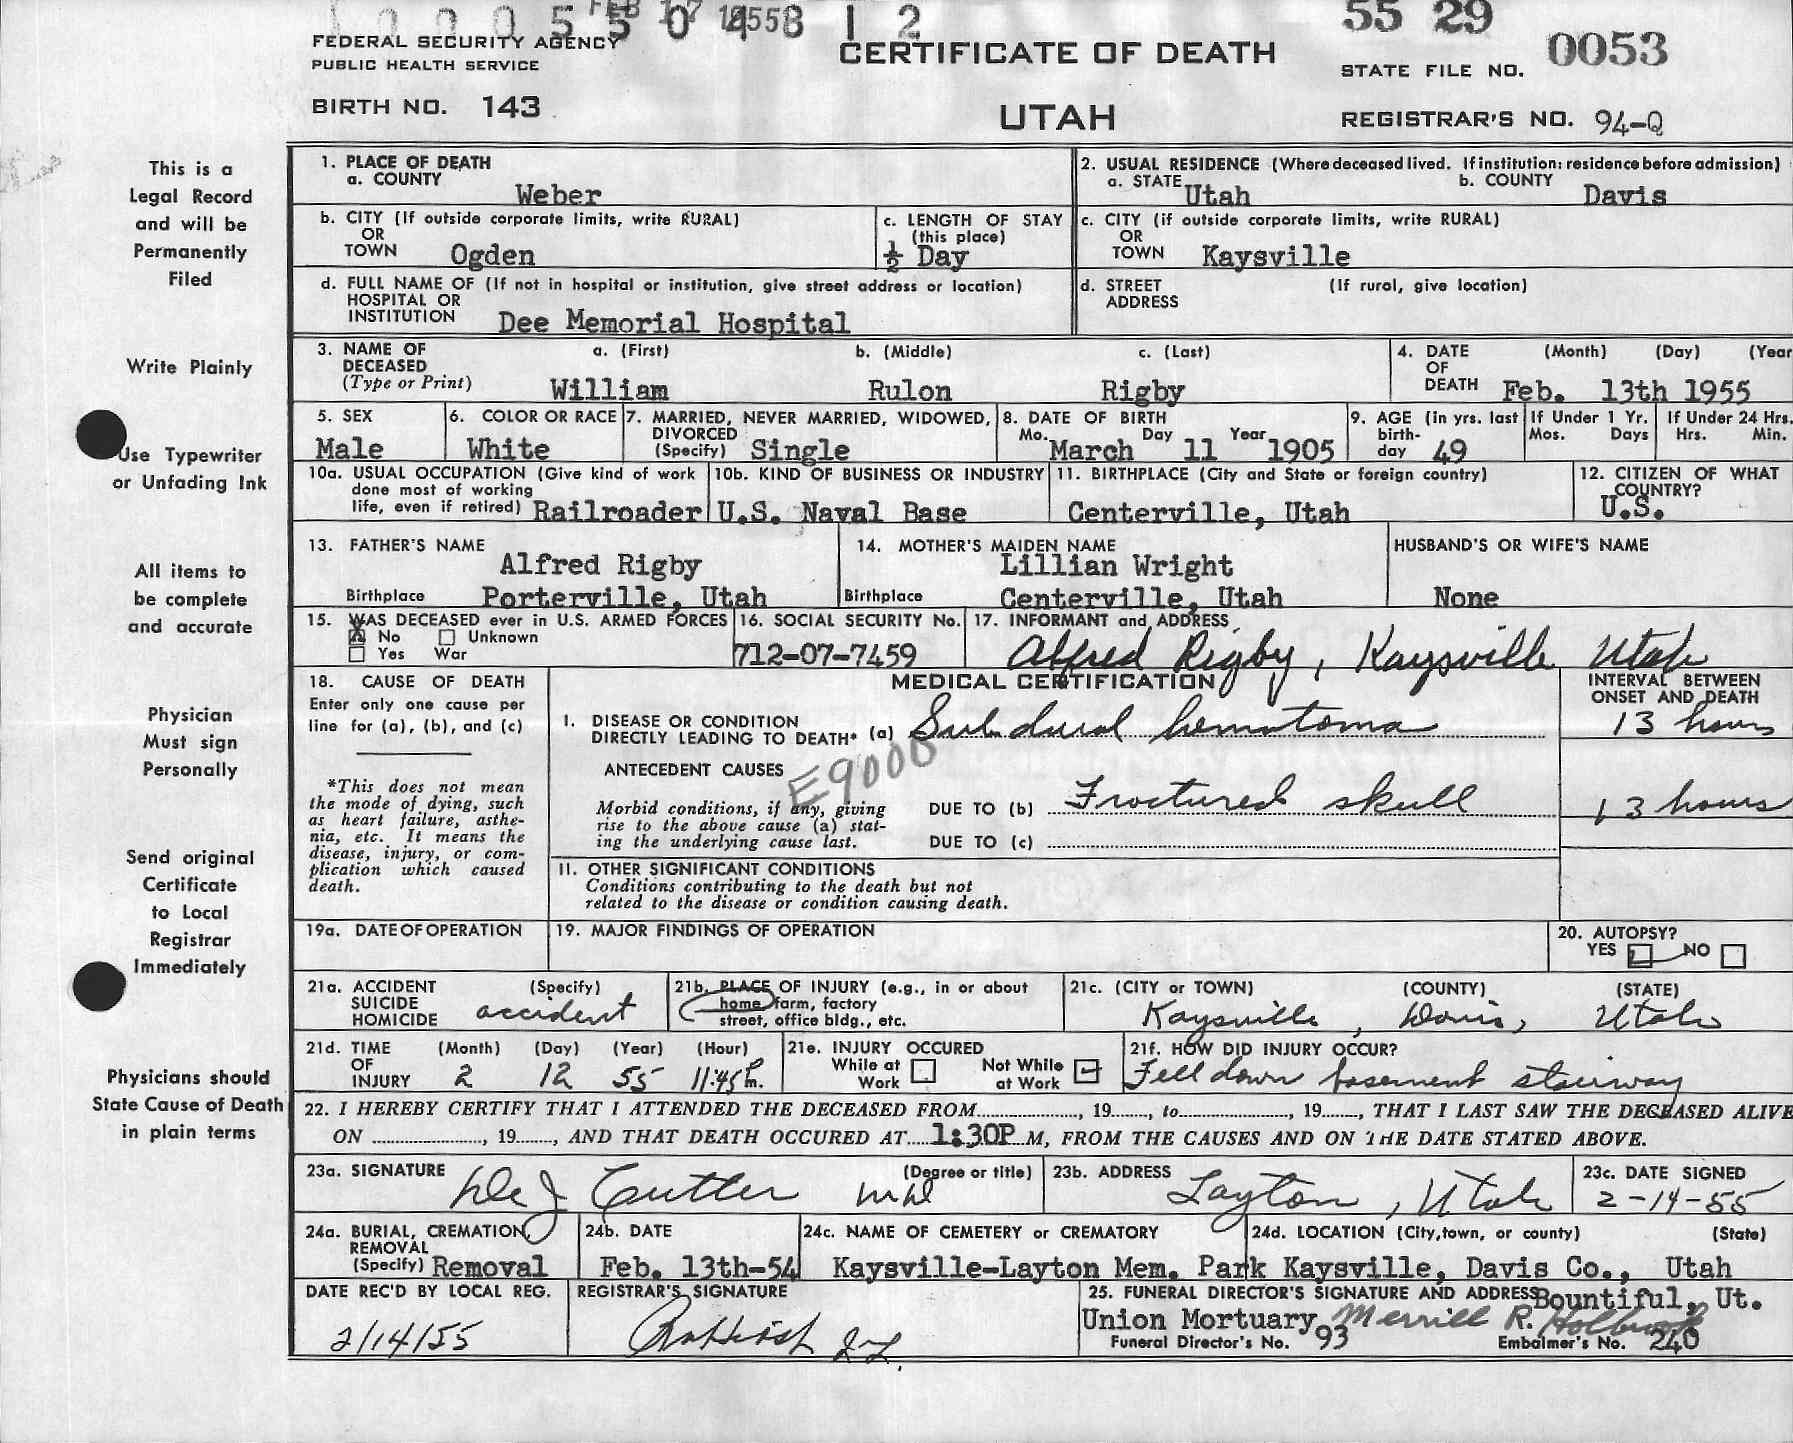 55 29
FEDERAL SECURITY AGENCY
PUBLIC HEALTH SERVICE
BIRTH NO. 143
CERTIFICATE OF DEATH
UTAH
STATE FILE NO. 0053
REGISTRAR'S NO. 94-Q
This is a
Legal Record
and will be
Permanently
Filed
Write Plainly
Use Typewriter
or Unfading Ink
All items to
be complete
and accurate
Physician
Must sign
Personally
Send original
Certificate
to Local
Registrar
Immediately
Physicians should
State Cause of Death
in plain terms
1. PLACE OF DEATH
a. COUNTY Weber
2. USUAL RESIDENCE (Where deceased lived. If institution: residence before admission)
a. STATE Utah b. COUNTY Davis
b. CITY (If outside corporate limits, write RURAL)
OR
TOWN Ogden
c. LENGTH OF STAY
(this place)
½ Day
c. CITY (if outside corporate limits, write RURAL)
OR
TOWN Kaysville
d. FULL NAME OF (If not in hospital or institution, give street address or location)
HOSPITAL OR
INSTITUTION Dee Memorial Hospital
d. STREET (If rural, give location)
ADDRESS
3. NAME OF a. (First) b. (Middle) c. (Last)
DECEASED
(Type or Print) William Rulon Rigby
4. DATE (Month) (Day) (Year
OF
DEATH Feb. 13th 1955
5. SEX
Male
6. COLOR OR RACE
White
7. MARRIED, NEVER MARRIED, WIDOWED,
DIVORCED
(Specify) Single
8. DATE OF BIRTH
Mo. Day Year
March 11 1905
9. AGE (in yrs. last
birth-
day 49
If Under 1 Yr.
Mos. Days
If Under 24 Hrs.
Hrs. Min.
10a. USUAL OCCUPATION (Give kind of work
done most of working
life, even if retired) Railroader
10b. KIND OF BUSINESS OR INDUSTRY
U.S. Naval Base
11. BIRTHPLACE (City and State or foreign country)
Centerville, Utah
12. CITIZEN OF WHAT
COUNTRY?
U.S.
13. FATHER'S NAME
Alfred Rigby
Birthplace Porterville, Utah
14. MOTHER'S MAIDEN NAME
Lillian Wright
Birthplace Centerville, Utah
HUSBAND'S OR WIFE'S NAME
None
15. WAS DECEASED ever in U.S. ARMED FORCES
X No Unknown
Yes War
16. SOCIAL SECURITY No.
712-07-7459
17. INFORMANT and ADDRESS
Alfred Rigby, Kaysville Utah
18. CAUSE OF DEATH
Enter only one cause per
line for (a), (b), and (c)
*This does not mean
the mode of dying, such
as heart failure, asthe-
nia, etc. It means the
disease, injury, or com-
plication which caused
death.
MEDICAL CERTIFICATION
INTERVAL BETWEEN
ONSET AND DEATH
I. DISEASE OR CONDITION
DIRECTLY LEADING TO DEATH* (a) Sub dural hematoma 13 hours
ANTECEDENT CAUSES E9000
Morbid conditions, if any, giving
rise to the above cause (a) stat-
ing the underlying cause last.
DUE TO (b) Fractured skull 13 hours
DUE TO (c)
II. OTHER SIGNIFICANT CONDITIONS
Conditions contributing to the death but not
related to the disease or condition causing death.
19a. DATE OF OPERATION
19. MAJOR FINDINGS OF OPERATION
20. AUTOPSY?
YES NO
21a. ACCIDENT (Specify)
SUICIDE
HOMICIDE accident
21b. PLACE OF INJURY (e.g., in or about
home farm, factory
street, office bldg., etc.
21c. (CITY or TOWN) (COUNTY) (STATE)
Kaysville, Davis, Utah
21d. TIME (Month) (Day) (Year) (Hour)
OF
INJURY 2 12 55 11:45 P m.
21e. INJURY OCCURED
While at
Work
Not While
at Work
21f. HOW DID INJURY OCCUR?
Fell down basement stairway
22. I HEREBY CERTIFY THAT I ATTENDED THE DECEASED FROM ........, 19......, to ........, 19......, THAT I LAST SAW THE DECEASED ALIVE
ON ........, 19......, AND THAT DEATH OCCURED AT 1:30P M, FROM THE CAUSES AND ON THE DATE STATED ABOVE.
23a. SIGNATURE (Degree or title)
Cutler MD
23b. ADDRESS
Layton, Utah
23c. DATE SIGNED
2-14-55
24a. BURIAL, CREMATION,
REMOVAL
(Specify) Removal
24b. DATE
Feb. 13th-54
24c. NAME OF CEMETERY or CREMATORY
Kaysville-Layton Mem. Park
24d. LOCATION (City, town, or county) (State)
Kaysville, Davis Co., Utah
DATE REC'D BY LOCAL REG.
2/14/55
REGISTRAR'S SIGNATURE
25. FUNERAL DIRECTOR'S SIGNATURE AND ADDRESS Bountiful, Ut.
Union Mortuary Merrill R. Holbrook
Funeral Director's No. 93 Embalmer's No. 240